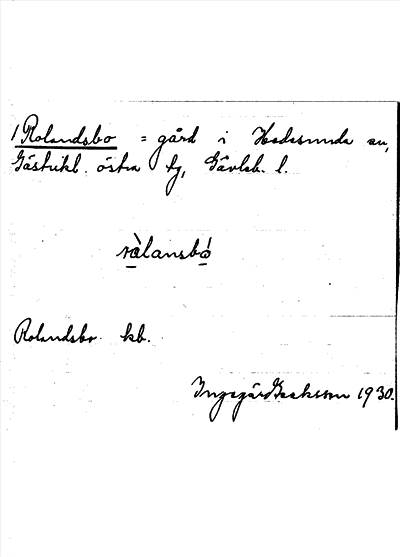 1 Rolandsbo = gård i Hedesunda sn,
Gästrikl. östra tg, Gävleb. l.
ràlansbó
Rolandsbo kb.
Ingegärd Isaksson 1930.